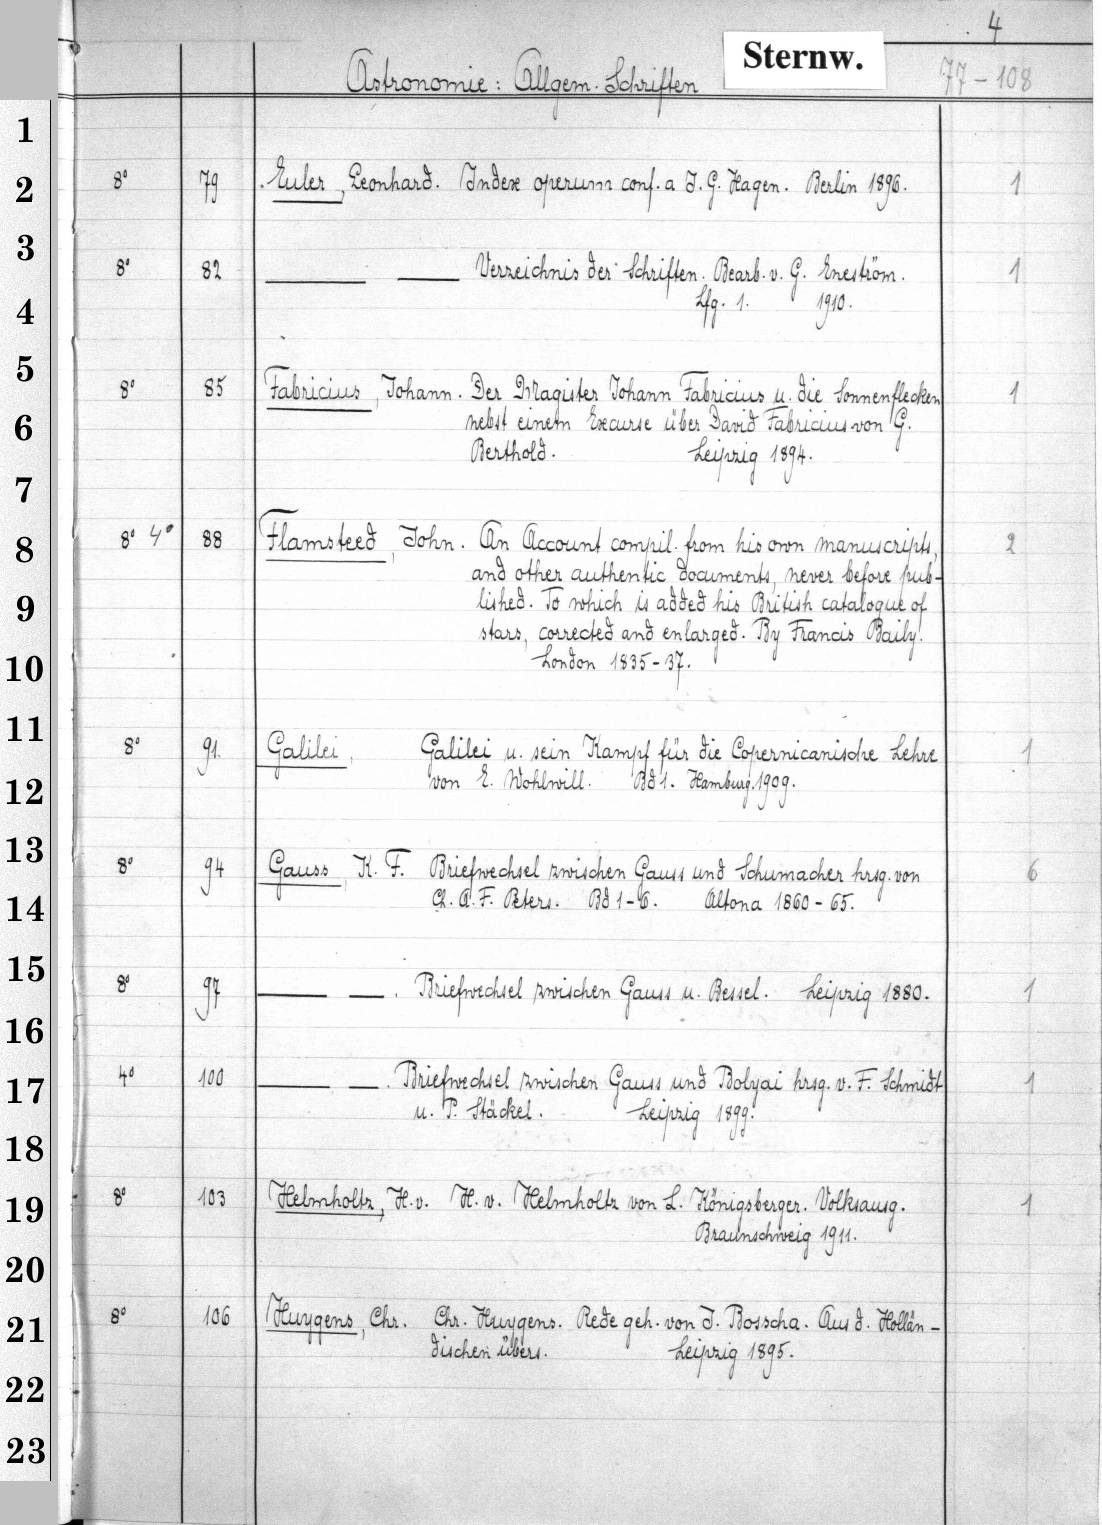 4
Astronomie: Allgem. Schriften Sternw. 77-108
1
8° 79 Euler, Leonhard. Index operum conf. a J. G. Hagen. Berlin 1896. 1
2
3
8° 82 ——— ——— Verzeichnis der Schriften. Bearb. v. G. Eneström. 1
Lfg. 1. 1910.
4
5
8° 85 Fabricius, Johann. Der Magister Johann Fabricius u. die Sonnenflecken 1
6 nebst einem Excurse über David Fabricius von G.
Berthold. Leipzig 1894.
7
8 8° 4° 88 Flamsteed, John. An Account compil. from his own manuscripts, 2
and other authentic documents, never before pub-
9 lished. To which is added his British catalogue of
stars, corrected and enlarged. By Francis Baily.
10 London 1835-37.
11
8° 91. Galilei, Galilei u. sein Kampf für die Copernicanische Lehre 1
12 von E. Wohlwill. Bd 1. Hamburg. 1909.
13
8° 94 Gauss, K. F. Briefwechsel zwischen Gauss und Schumacher hrsg. von 6
14 Ch. A. F. Peters. Bd 1-6. Altona 1860-65.
15
8° 97 ——— ———. Briefwechsel zwischen Gauss u. Bessel. Leipzig 1880. 1
16
17 4° 100 ——— ———. Briefwechsel zwischen Gauss und Bolyai hrsg. v. F. Schmidt 1
u. P. Stäckel. Leipzig 1899.
18
19 8° 103 Helmholtz, H. v. H. v. Helmholtz von L. Königsberger. Volksausg. 1
Braunschweig 1911.
20
21 8° 106 Huygens, Chr. Chr. Huygens. Rede geh. von J. Bosscha. Aus d. Hollän-
dischen übers. Leipzig 1895.
22
23